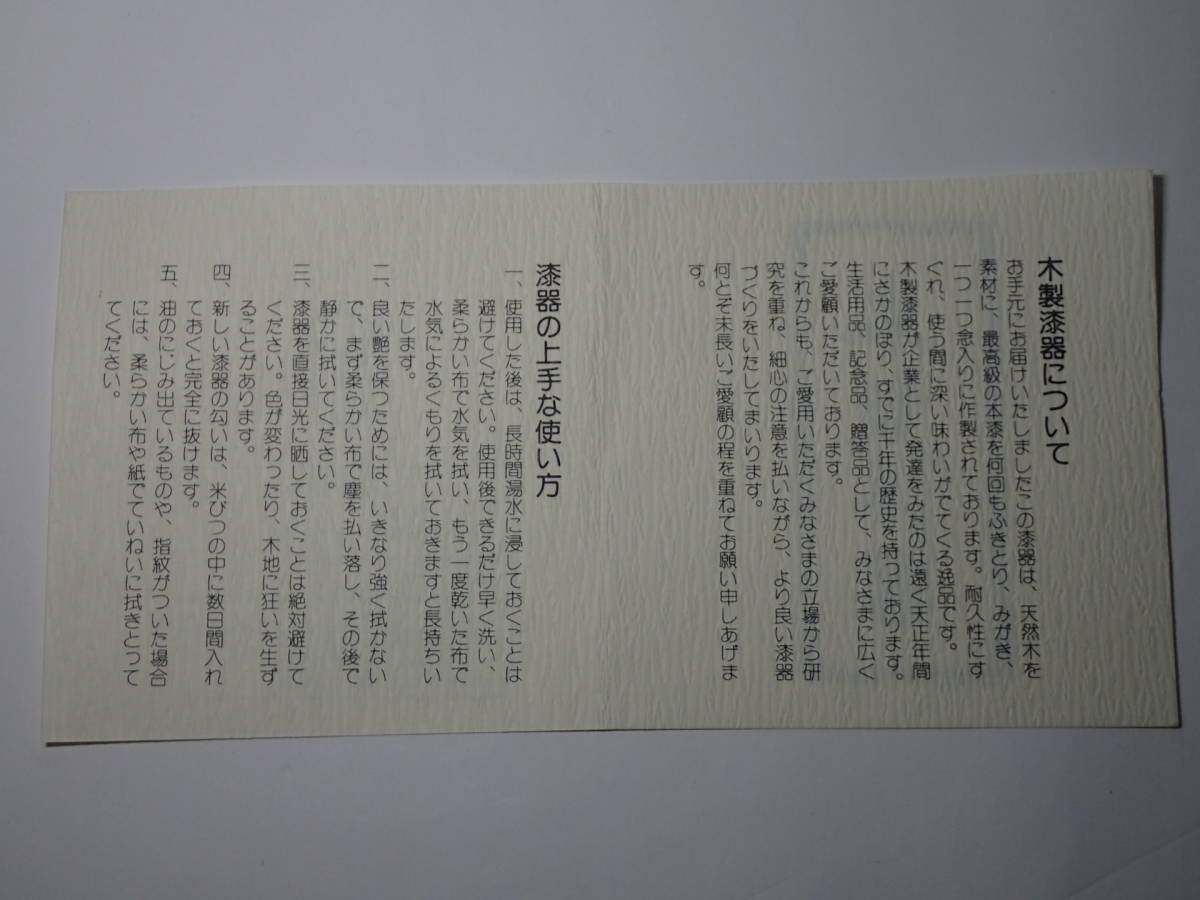 木製漆器について
お手元にお届けいたしましたこの漆器は、天然木を
素材に、最高級の本漆を何回もふきとり、みがき、
一つ一つ念入りに作製されております。耐久性にす
ぐれ、使う間に深い味わいがでてくる逸品です。
木製漆器が企業として発達をみたのは遠く天正年間
にさかのぼり、すでに千年の歴史を持っております。
生活用品、記念品、贈答品として、みなさまに広く
ご愛顧いただいております。
これからも、ご愛用いただくみなさまの立場から研
究を重ね、細心の注意を払いながら、より良い漆器
づくりをいたしてまいります。
何とぞ末長いご愛顧の程を重ねてお願い申しあげま
す。
漆器の上手な使い方
一、使用した後は、長時間湯水に浸しておくことは
避けてください。使用後できるだけ早く洗い、
柔らかい布で水気を拭い、もう一度乾いた布で
水気によるくもりを拭いておきますと長持ちい
たします。
二、良い艶を保つためには、いきなり強く拭かない
で、まず柔らかい布で塵を払い落し、その後で
静かに拭いてください。
三、漆器を直接日光に晒しておくことは絶対避けて
ください。色が変わったり、木地に狂いを生ず
ることがあります。
四、新しい漆器の匂いは、米びつの中に数日間入れ
ておくと完全に抜けます。
五、油のにじみ出ているものや、指紋がついた場合
には、柔らかい布や紙でていねいに拭きとって
てください。